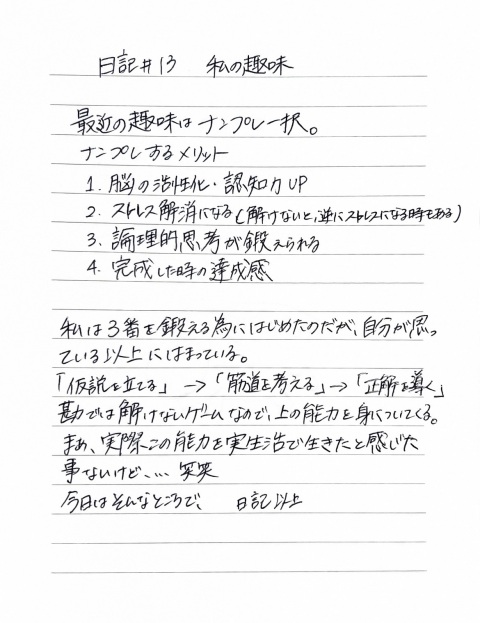 日記#13 私の趣味
最近の趣味はナンプレ一択。
ナンプレするメリット
1. 脳の活性化・認知力UP
2. ストレス解消になる(解けないと、逆にストレスになる時もある)
3. 論理的思考が鍛えられる
4. 完成した時の達成感
私は3番を鍛える為にはじめたのだが、自分が思っ
ている以上にはまっている。
「仮説を立てる」→「筋道を考える」→「正解を導く」
勘では解けないゲームなので、上の能力を身についてくる。
まあ、実際この能力を実生活で生きたと感じた
事ないけど、… 笑笑
今日はそんなところで、 日記以上